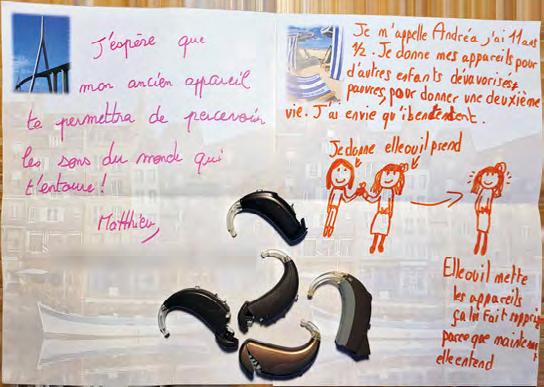 J'éspère que
mon ancien appareil
te permettra de percevoir
les sons du monde qui
t'entoure !
Matthieu
Je m'appelle Andréa, j'ai 11 ans
1/2. Je donne mes appareils pour
d'autres enfants dévavorisés,
pauvres, pour donner une deuxième
vie. J'ai envie qu'il
Je donne elle ou il prend
Elle ou il mette
les appareils
ça lui fait
parce que maintenant
elle entend